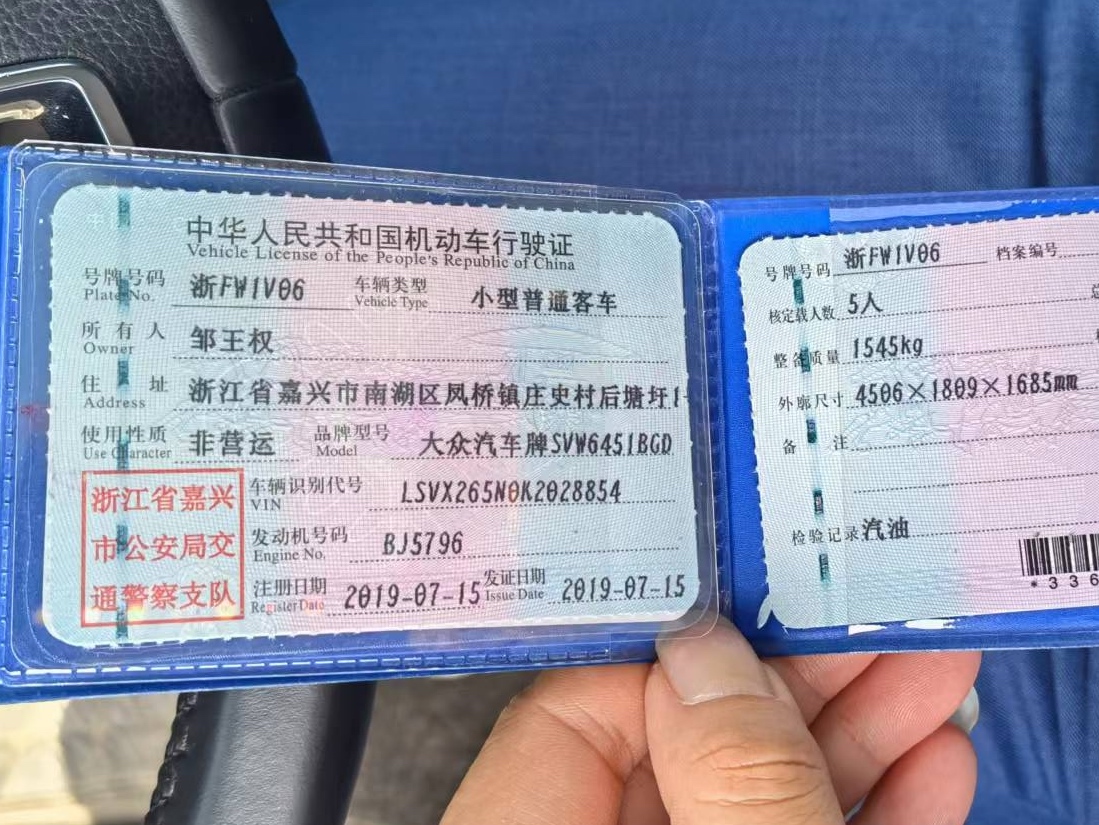 中华人民共和国机动车行驶证
Vehicle License of the People's Republic of China
号牌号码 浙FW1V06 车辆类型 小型普通客车
Plate No. Vehicle Type
所有人 邹王权
Owner
住址 浙江省嘉兴市南湖区凤桥镇庄史村后塘圩1
Address
使用性质 非营运 品牌型号 大众汽车牌SVW6451BGD
Use Character Model
浙江省嘉兴
市公安局交
通警察支队
车辆识别代号 LSVX265N0K2028854
VIN
发动机号码 BJ5796
Engine No.
注册日期 2019-07-15 发证日期 2019-07-15
Register Date Issue Date
号牌号码 浙FW1V06 档案编号
核定载人数 5人
整备质量 1545kg
外廓尺寸 4506×1809×1685mm
备注
检验记录 汽油
*336